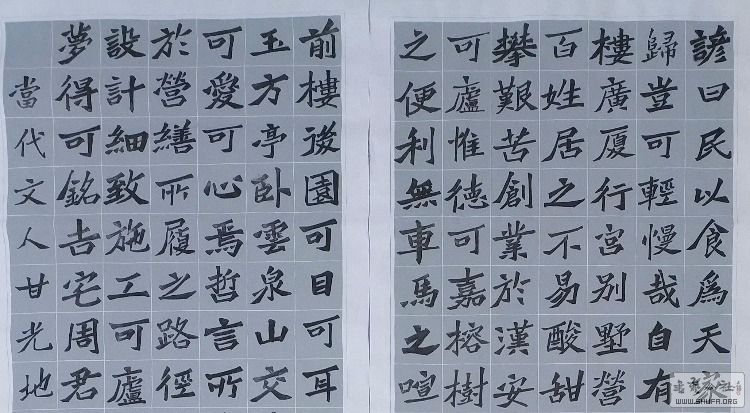 諺曰民以食爲天
歸豈可輕慢哉自有
樓廣厦行宮别墅營
百姓居之不易酸甜
攀艱苦創業於漢安
可廬惟德可嘉榕樹
之便利無車馬之喧
前樓後園可目可耳
玉方亭卧雲泉山交
可愛可心焉哲言所
於營繕所履之路徑
設計細致施工可廬
夢得可銘吉宅周君
當代文人甘光地
WWW.SHUFA.ORG